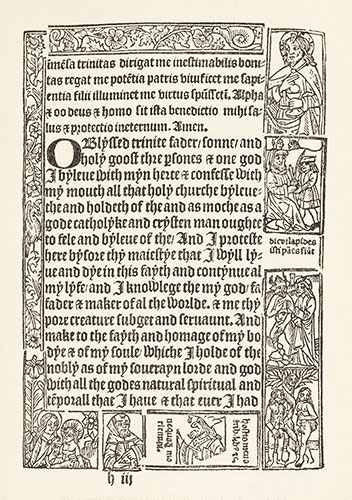 imẽsa trinitas dirigat me inestimabilis boni
tas regat me potẽtia patris viuificet me sapi
entia filii illuminet me virtus spũsseti. Alpha
& oo deus & homo sit ista benedictio mihi sa
lus & protectio ineternum. Amen.
O Blyssed trinite fader, sonne, and
holy goost thre psones & one god
I byleue with myn herte & confesse with
my mouth all that holy churche byleue-
the and holdeth of the and as moche as a
gode catholyke and crysten man oughte
to fele and byleue of the, And I proteste
here byfore thy maiestye that I wyll ly-
ue and dye in this fayth and contynue al
my lyfe, and I knowlege the my god, fa
fader & maker of al the worlde. & me thy
pore creature subget and seruaunt. And
make to the fayth and homage of my bo
dye & of my soule whiche I holde of the
nobly as of my souerayn lorde and god
with all the godes natural spiritual and
tẽporall that I haue & that euer I had
dic vt lapides
isti pães fiãt
h iii